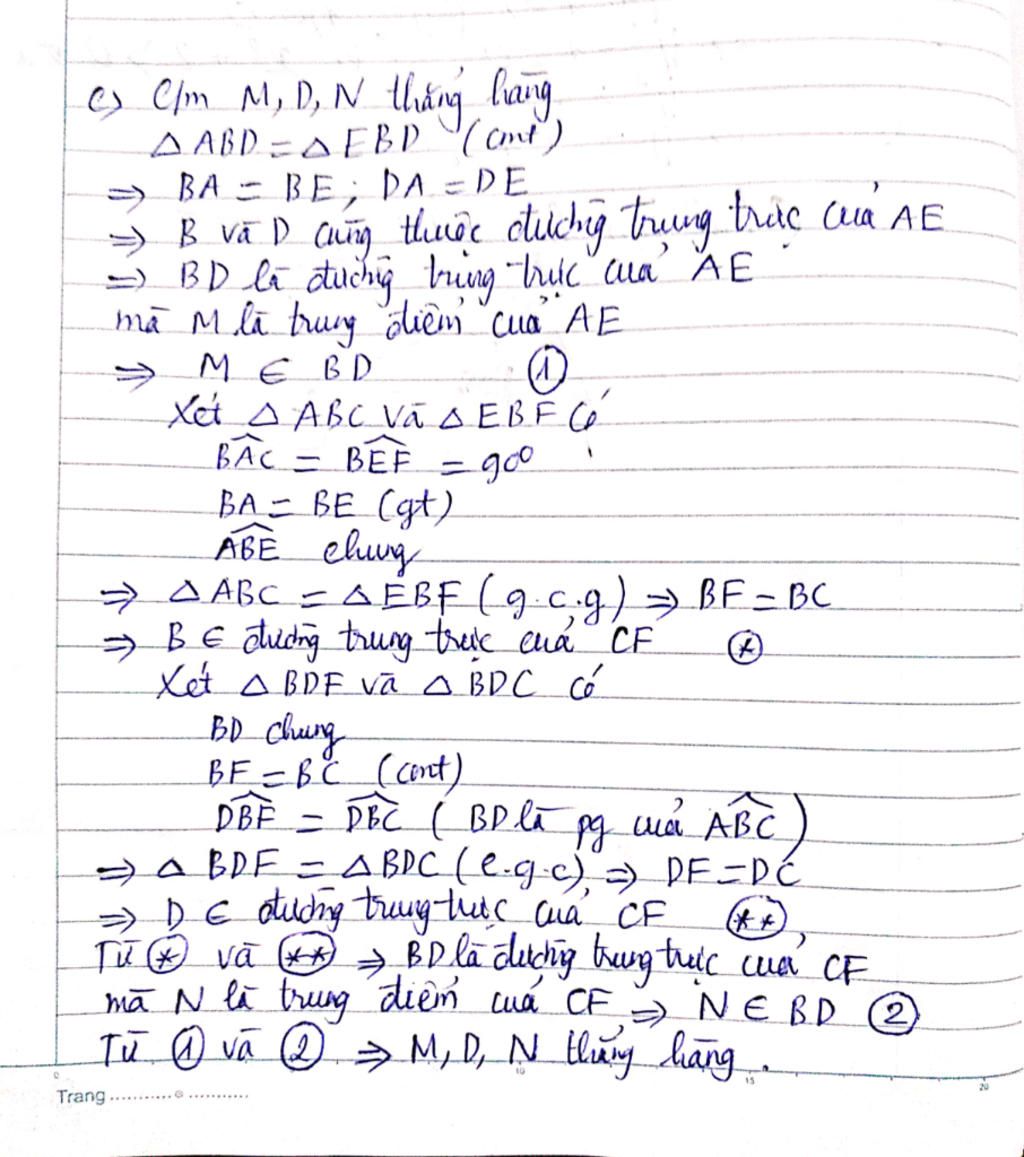 c) C/m M, D, N thẳng hàng
△ABD = △EBD (cmt)
⇒ BA = BE; DA = DE
⇒ B và D cùng thuộc đường trung trực của AE
⇒ BD là đường trung trực của AE
mà M là trung điểm của AE
⇒ M ∈ BD ①
Xét △ABC và △EBF có
\widehat{BAC} = \widehat{BEF} = 90°
BA = BE (gt)
\widehat{ABE} chung
⇒ △ABC = △EBF (g.c.g) ⇒ BF = BC
⇒ B ∈ đường trung trực của CF (*)
Xét △BDF và △BDC có
BD chung
BF = BC (cmt)
\widehat{DBF} = \widehat{DBC} (BD là pg của \widehat{ABC})
⇒ △BDF = △BDC (c.g.c) ⇒ DF = DC
⇒ D ∈ đường trung trực của CF (**)
Từ (*) và (**) ⇒ BD là đường trung trực của CF
mà N là trung điểm của CF ⇒ N ∈ BD ②
Từ ① và ② ⇒ M, D, N thẳng hàng.
0 10 15 20
Trang